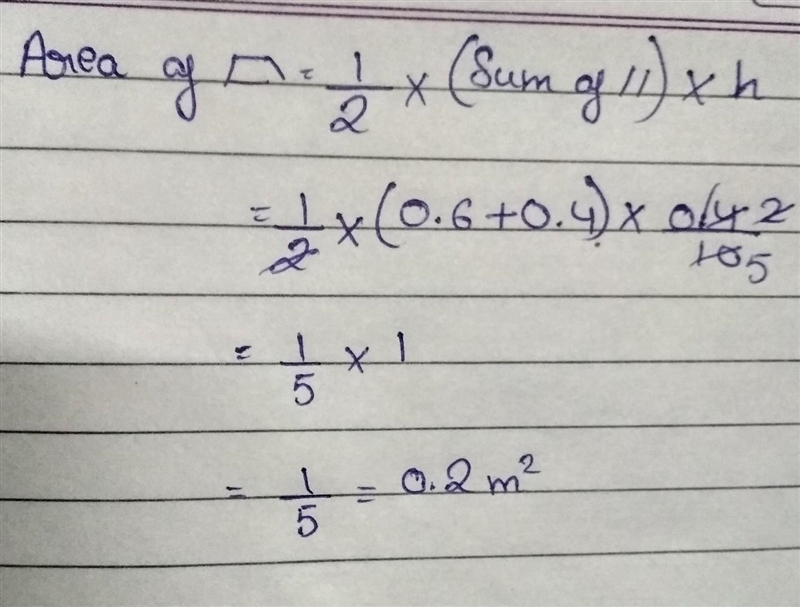 Area of ▱ = 1/2 × (Sum of ||) × h
= 1/2 × (0.6 + 0.4) × 0.4 2/10 5
= 1/5 × 1
= 1/5 = 0.2 m²